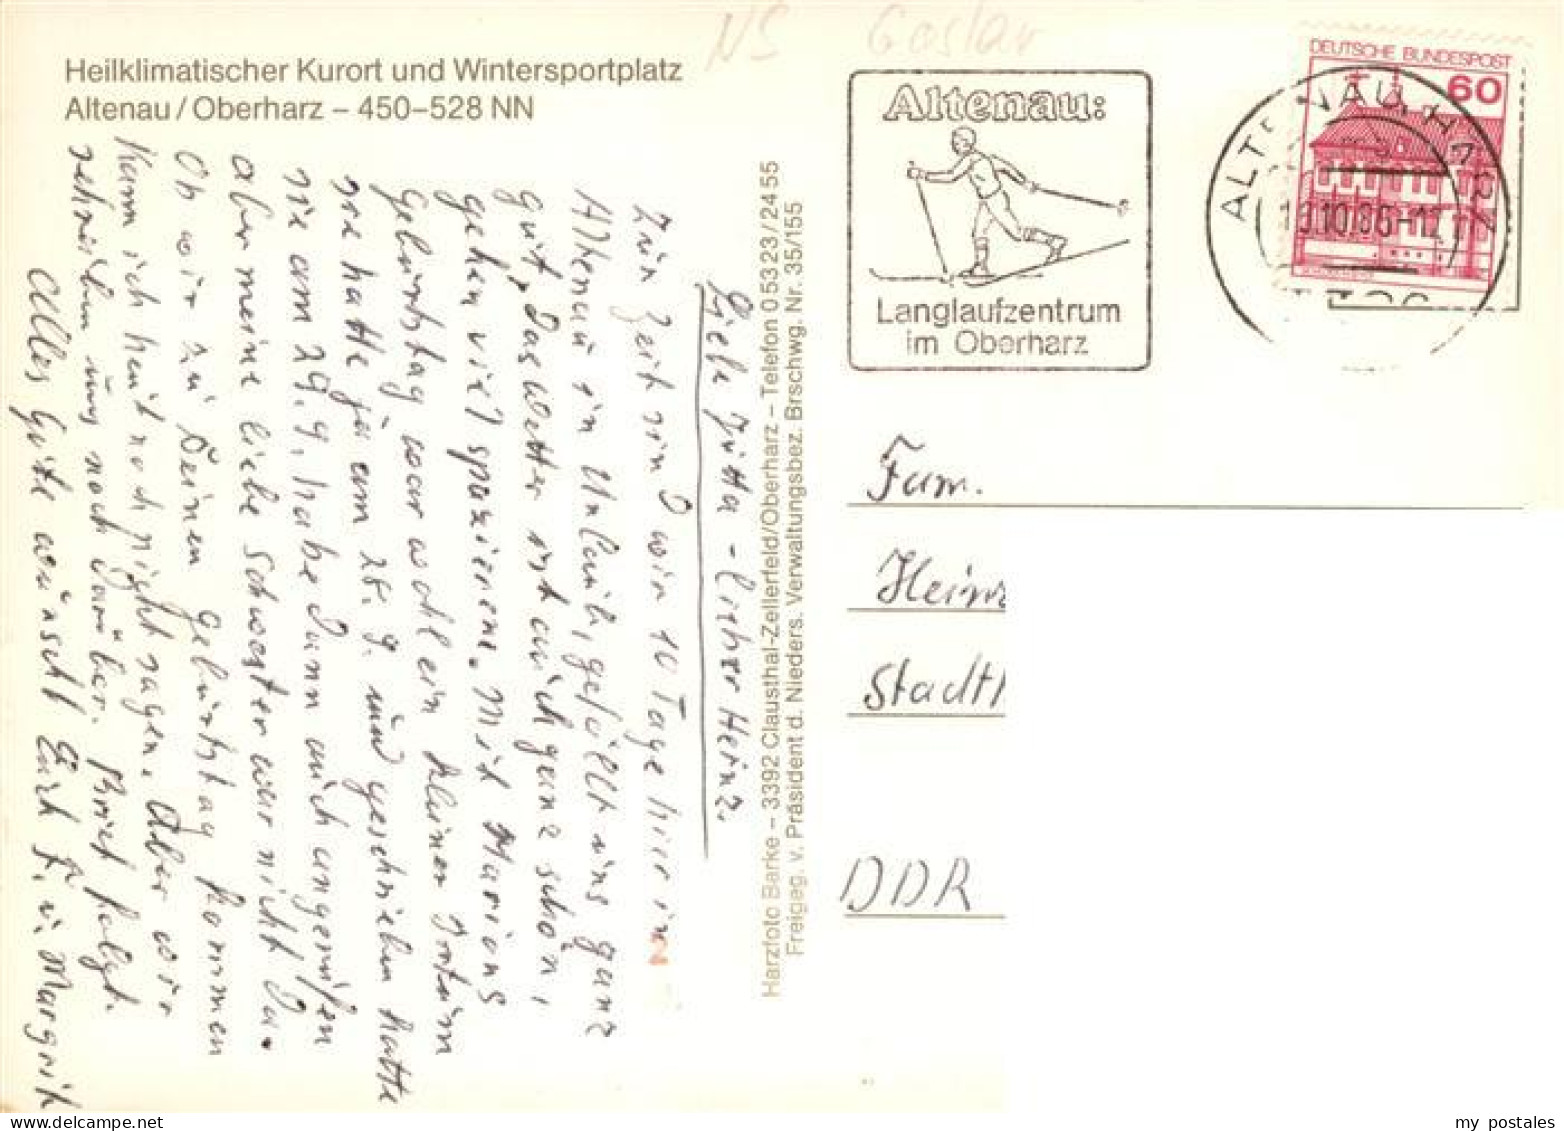 NS Goslar
Heilklimatischer Kurort und Wintersportplatz
Altenau / Oberharz – 450–528 NN
Altenau:
Langlaufzentrum
im Oberharz
DEUTSCHE BUNDESPOST
60
ALTENAU, HARZ
10.86-12
Liebe Jutta - Lieber Heinz.
Zur Zeit sind wir 10 Tage hier in
Altenau in Urlaub, gefällt uns ganz
gut, Das Wetter ist auch ganz schön,
gehen viel spazieren. Mit Marions
Geburtstag war wohl ein kleiner Irrtum
sie hatte ja am 28.9. und geschrieben hatte
sie am 29.9. habe Dann auch angerufen
aber meine liebe Schwester war nicht Da.
Ob wir zu Deinen Geburtstag kommen
kann ich heut noch nicht sagen. Aber wir
schreiben uns noch Darüber. Brief folgt.
Alles Gute wünscht Euch u. Margrit
Harzfoto Barke – 3392 Clausthal-Zellerfeld/Oberharz – Telefon 05323/2455
Freigeg. v. Präsident d. Nieders. Verwaltungsbez. Brschwg. Nr. 35/155
Fam.
Heinz
Stadt
DDR
my postales